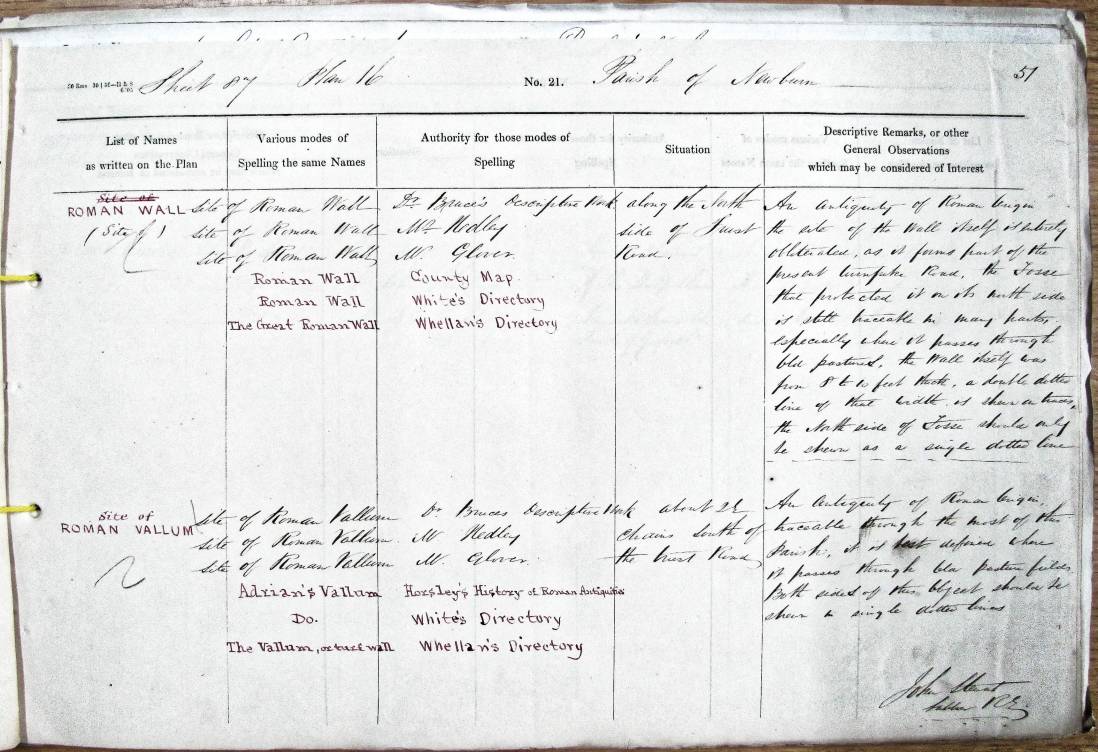 Sheet 87 Plan 16 No. 21. Parish of Newburn 51
List of Names
as written on the Plan
Various modes of
Spelling the same Names
Authority for those modes of
Spelling
Situation
Descriptive Remarks, or other
General Observations
which may be considered of Interest
Site of
ROMAN WALL
(Site of)
Site of Roman Wall
Site of Roman Wall
Site of Roman Wall
Roman Wall
Roman Wall
The Great Roman Wall
Dr. Bruce's Descriptive Work
Mr Hedley
Mr. Glover
County Map.
White's Directory
Whellan's Directory
along the North
side of Turst
Road.
An antiquity of Roman Origin
the site of the Wall itself is entirely
obliterated, as it forms part of the
present turnpike Road, the Fosse
that protected it on its north side
is still traceable in many parts,
especially where it passes through
old pastures, the Wall itself was
from 8 to 10 feet thick, a double dotted
line of that width is shewn on traces,
the North side of Fosse should only
be shewn as a single dotted line
Site of
ROMAN VALLUM
Site of Roman Vallum
Site of Roman Vallum
Site of Roman Vallum
Adrian's Vallum
Do.
The Vallum, or turf wall
Dr Bruces Descriptive Work
Mr Hedley
Mr. Glover.
Horsley's History of Roman Antiquities
White's Directory
Whellan's Directory
about 2½
Chains South of
the Turst Road
An Antiquity of Roman Origin,
traceable through the most of this
Parish, it is best defined where
it passes through old pasture fields
Both sides of this Object should be
shewn in single dotted lines
John
R.E.